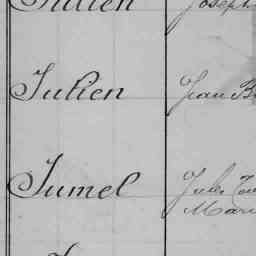 Julien Joseph
Julien Jean B
Jumel Jules
Mari